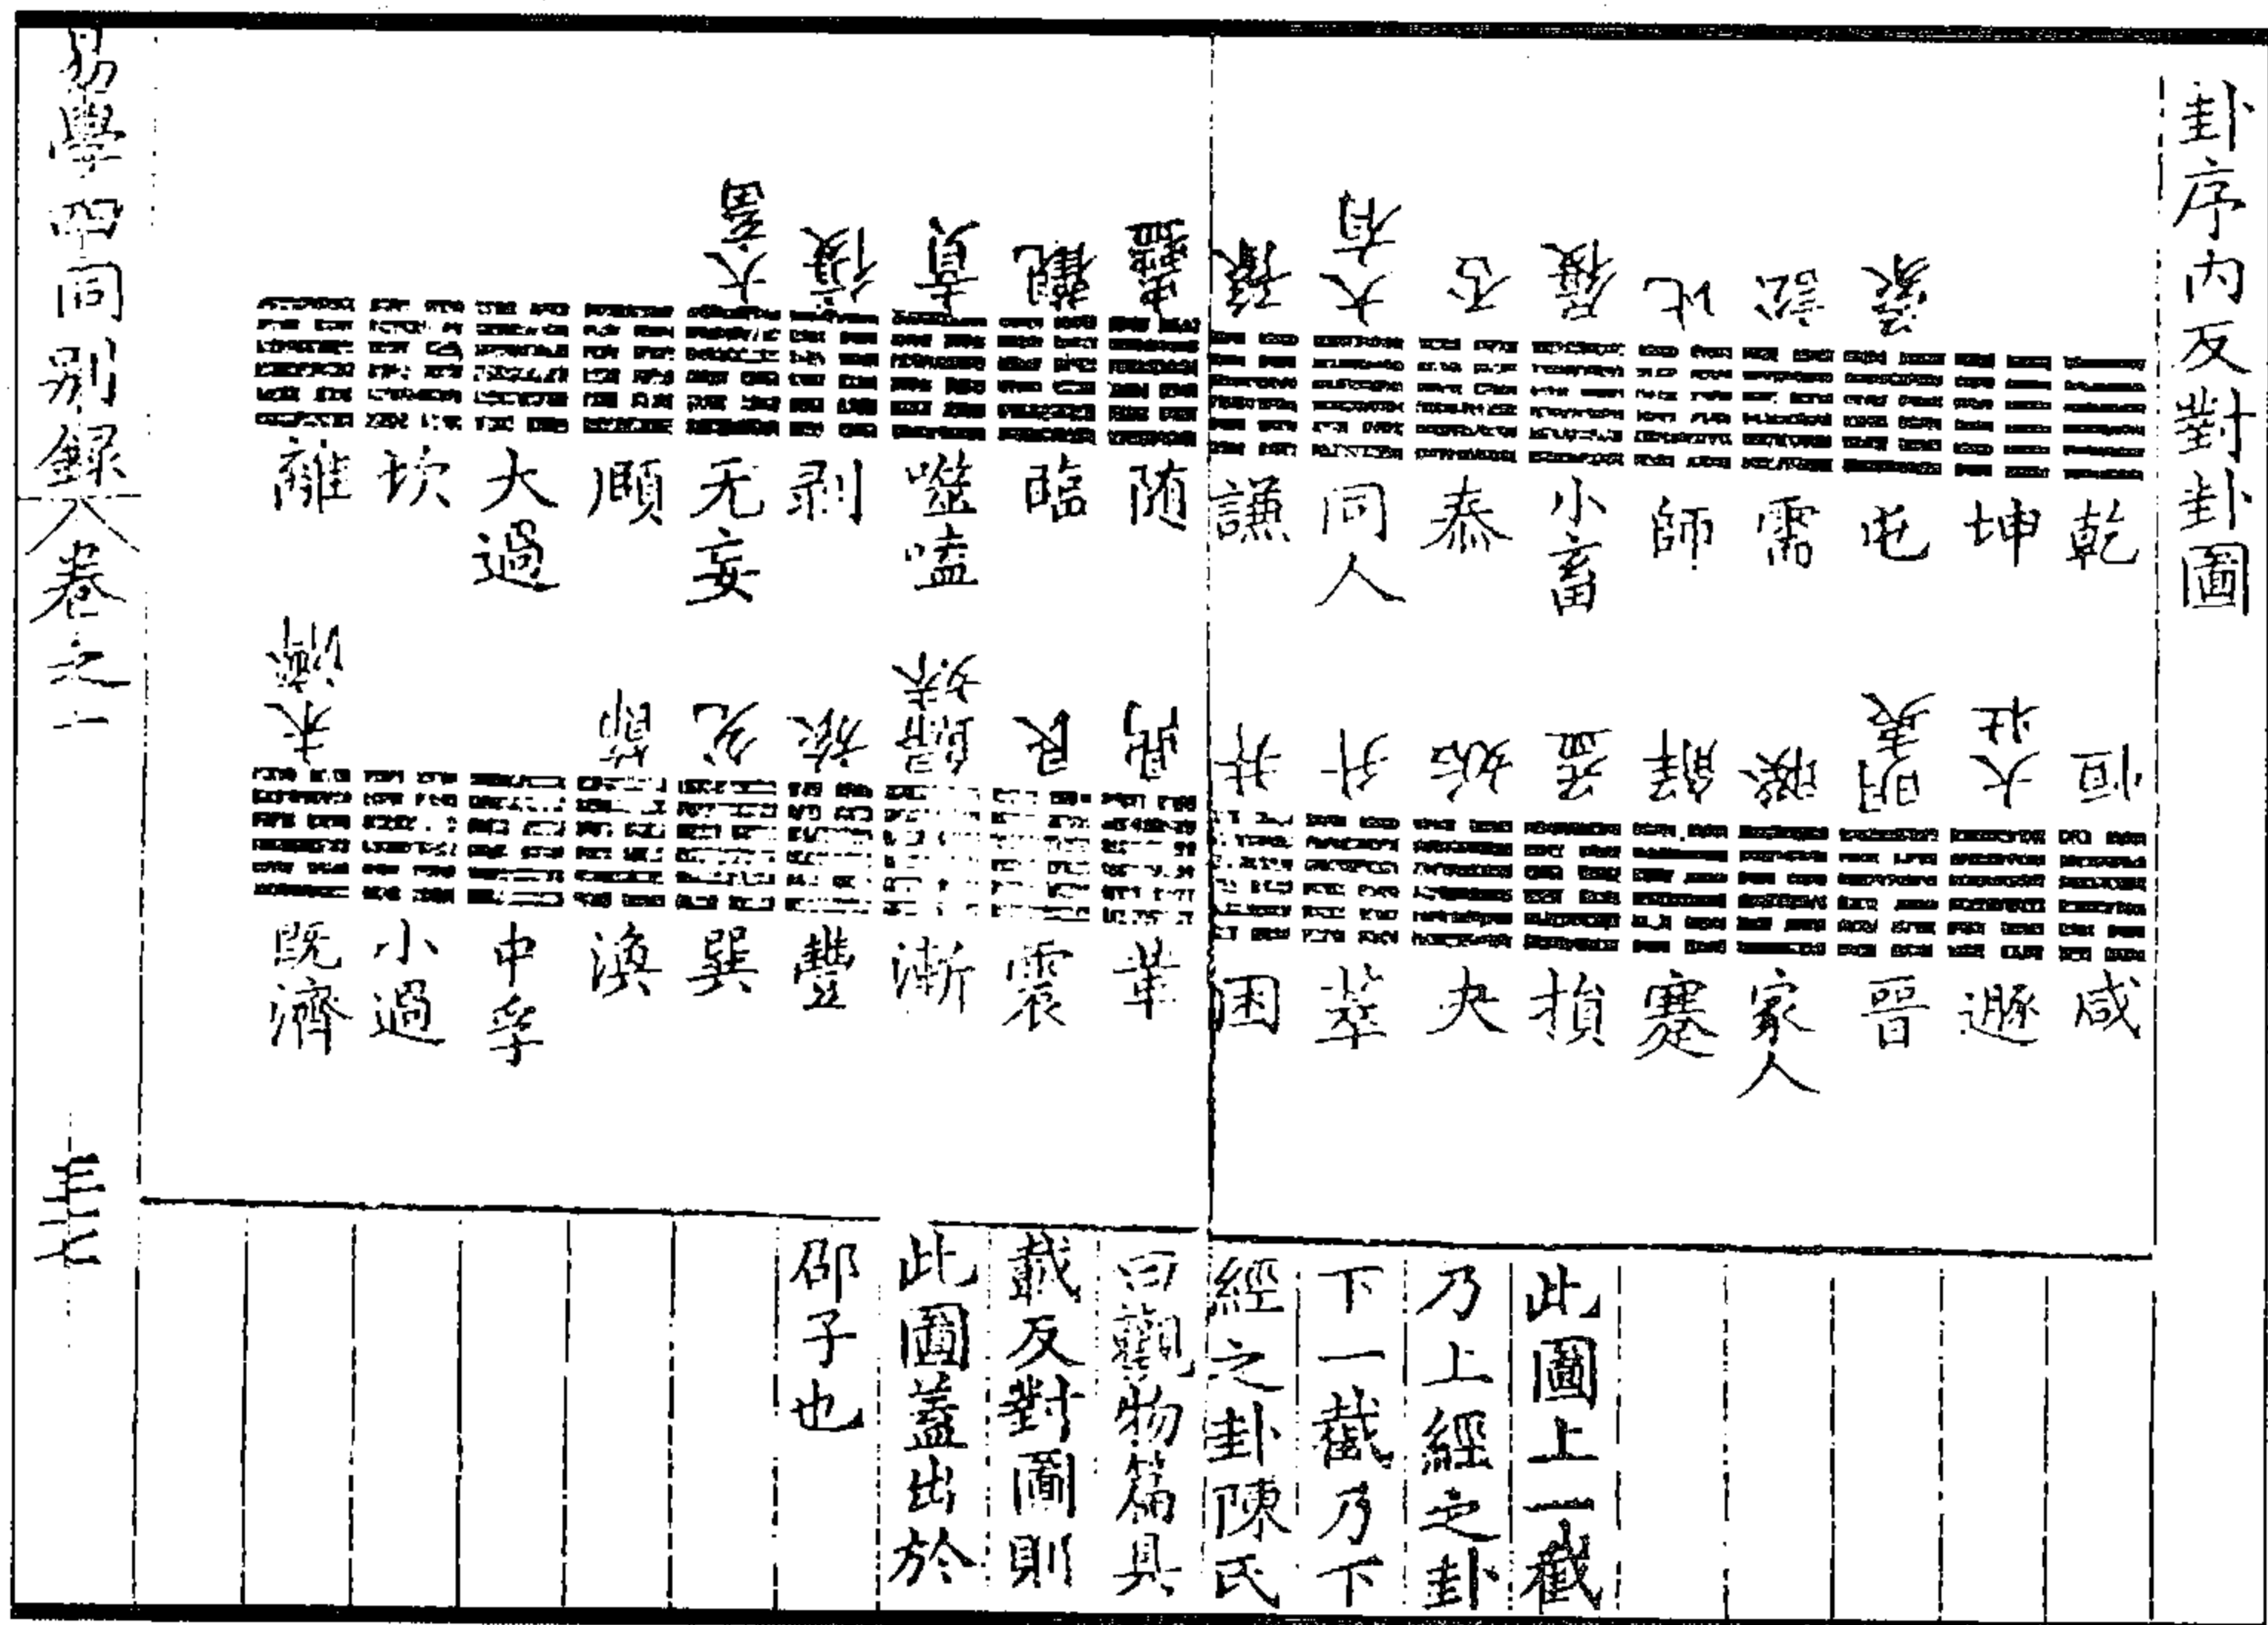 卦序内反對卦圖
蒙 訟 比 履 否 大有 豫 蠱 觀 賁 復 大畜
乾 坤 屯 需 師 小畜 泰 同人 謙 随 臨 噬嗑 剥 无妄 頤 大過 坎 離
恒 大壯 明夷 睽 解 益 姤 升 井 鼎 艮 歸妹 旅 兊 節 未濟
咸 遯 晋 家人 蹇 損 夬 萃 困 革 震 漸 豐 巽 渙 中孚 小過 既濟
此圖上一截
乃上經之卦
下一截乃下
經之卦陳氏
曰觀物篇具
載反對圖則
此圖蓋出於
邵子也
易學四同别録 卷之一
三十七